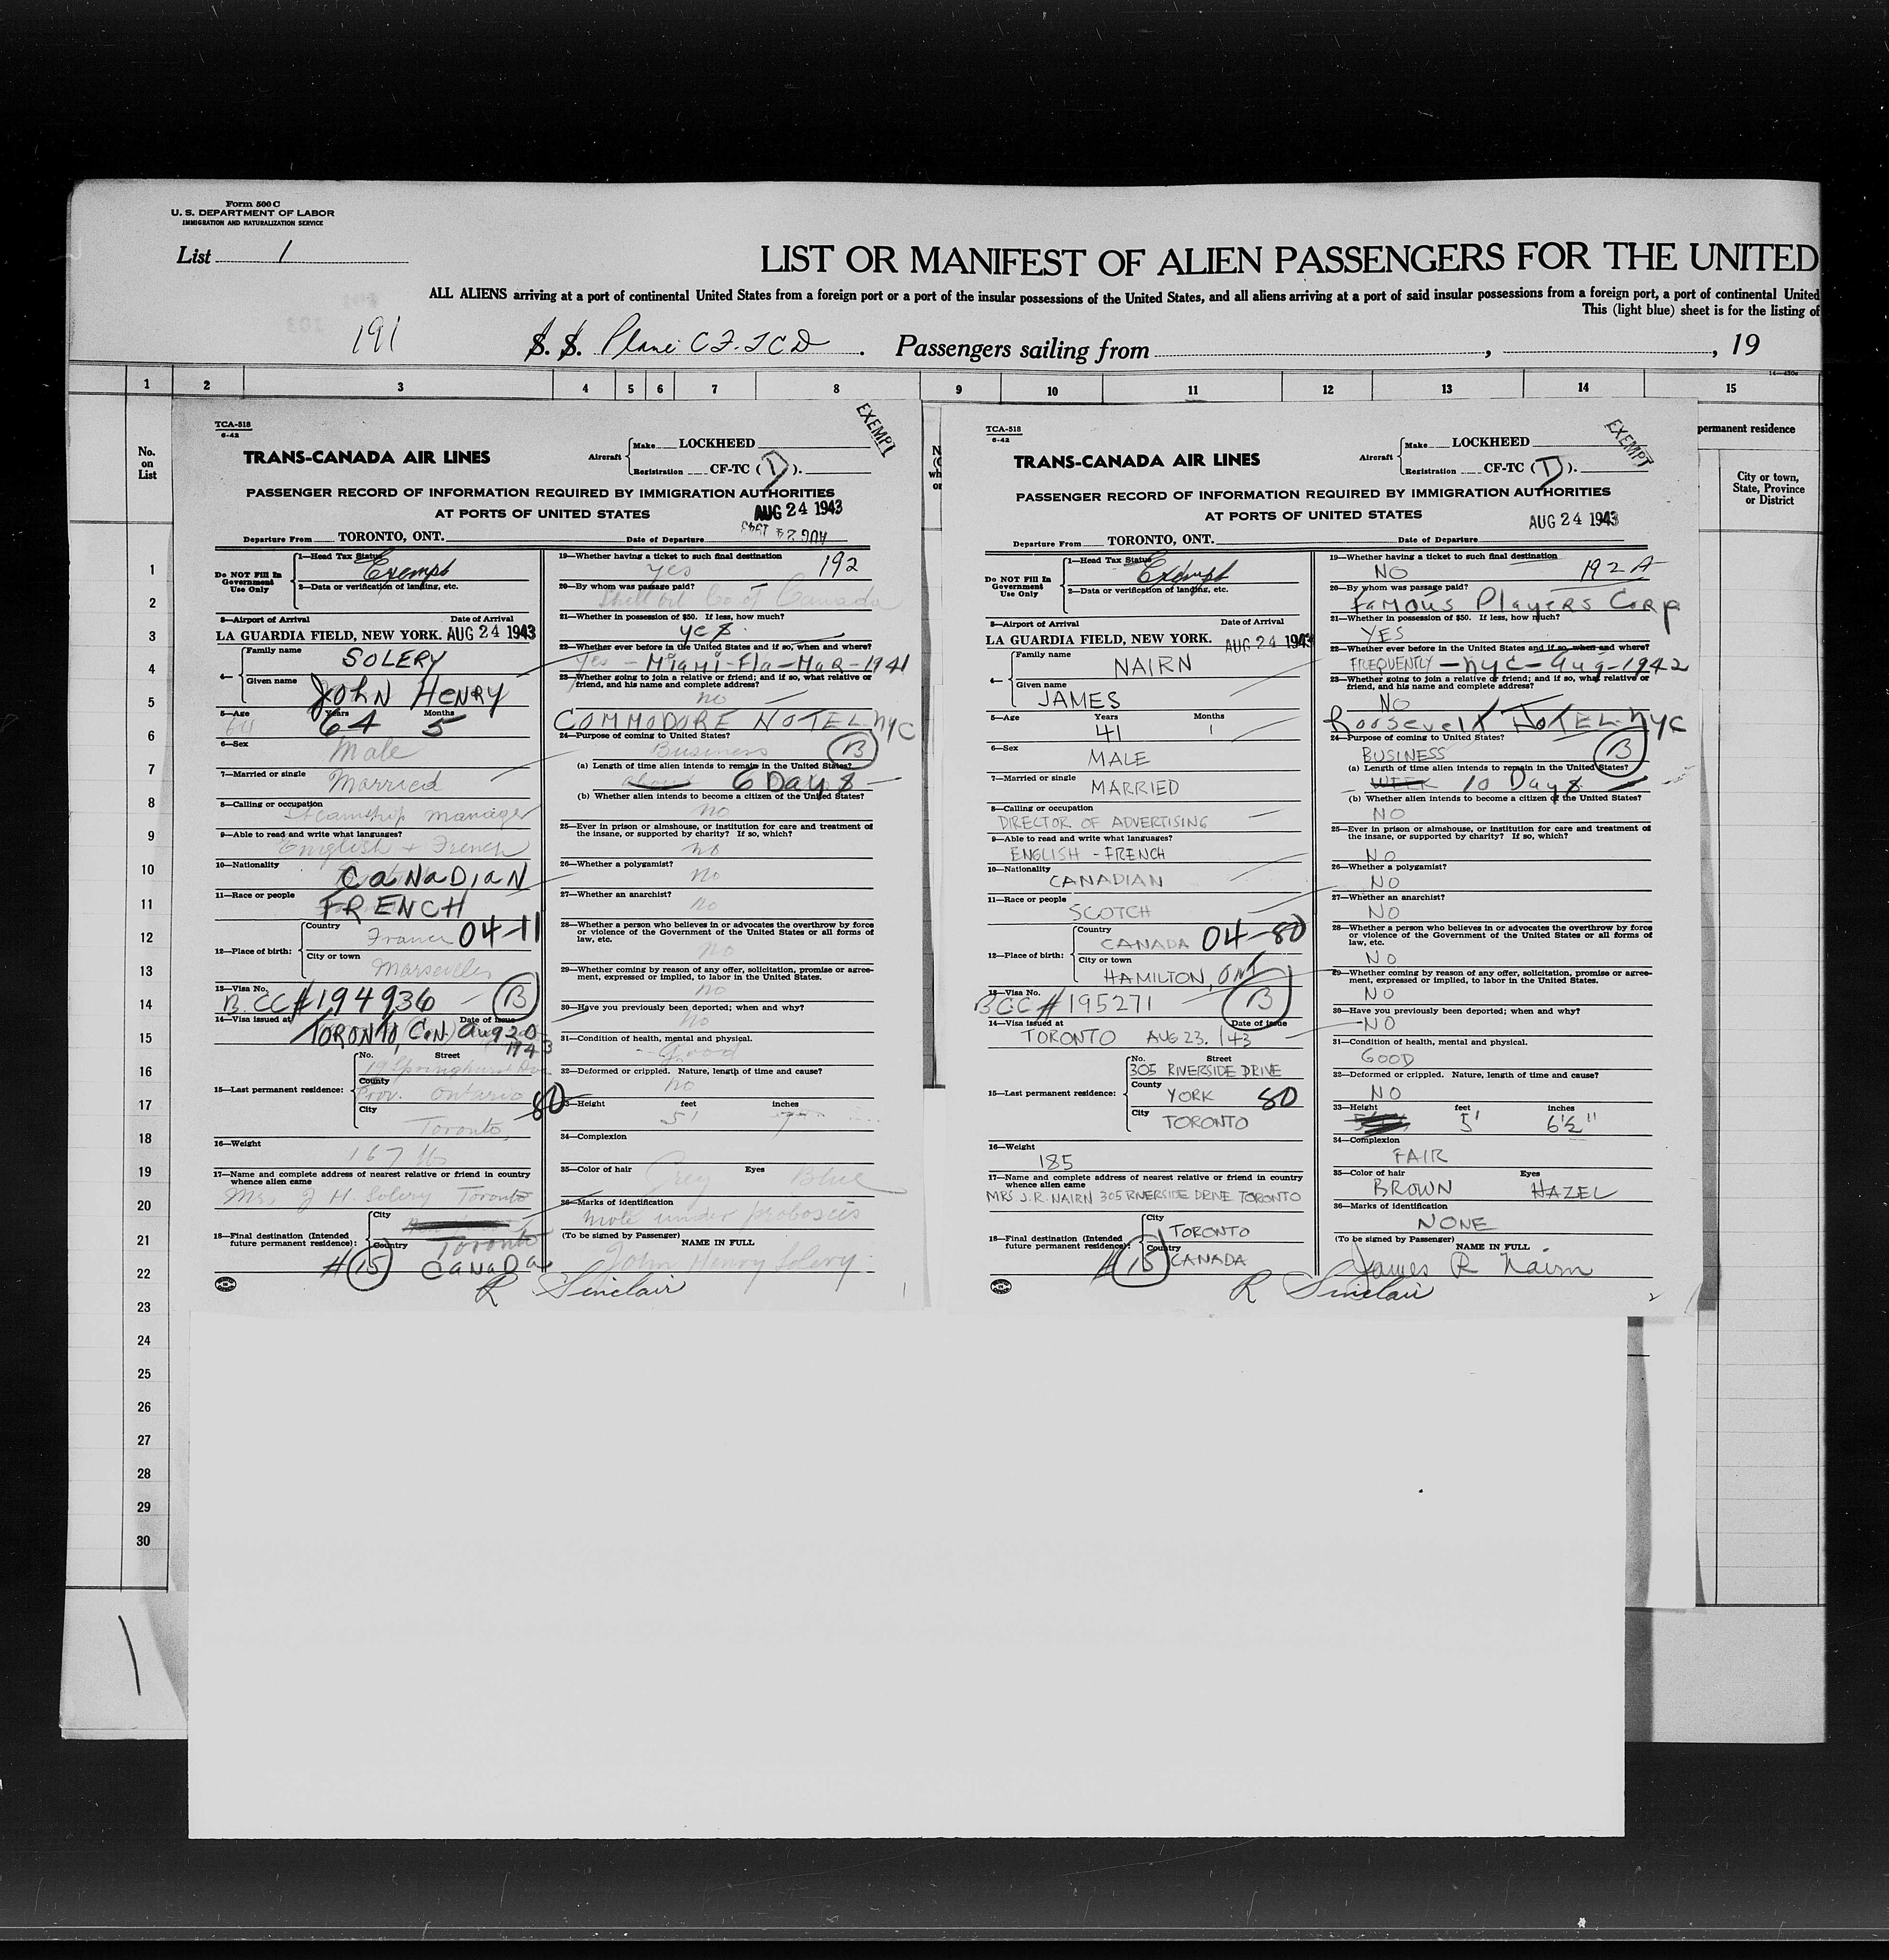 Form 500 C
U. S. DEPARTMENT OF LABOR
IMMIGRATION AND NATURALIZATION SERVICE
List 1
LIST OR MANIFEST OF ALIEN PASSENGERS FOR THE UNITED
ALL ALIENS arriving at a port of continental United States from a foreign port or a port of the insular possessions of the United States, and all aliens arriving at a port of said insular possessions from a foreign port, a port of continental United
This (light blue) sheet is for the listing of
191 S. S. Plane CF-TCD . Passengers sailing from , , 19
1 2 3 4 5 6 7 8 9 10 11 12 13 14 15
No. on List
permanent residence
City or town, State, Province or District
1
2
3
4
5
6
7
8
9
10
11
12
13
14
15
16
17
18
19
20
21
22
23
24
25
26
27
28
29
30
TCA-518
6-42
EXEMPT
TRANS-CANADA AIR LINES
Aircraft Make LOCKHEED
Registration CF-TC ( D ).
PASSENGER RECORD OF INFORMATION REQUIRED BY IMMIGRATION AUTHORITIES
AT PORTS OF UNITED STATES
AUG 24 1943
AUG 24 1943
Departure From TORONTO, ONT. Date of Departure
Do NOT Fill In Government Use Only
1—Head Tax Status
Exempt
2—Data or verification of landing, etc.
3—Airport of Arrival Date of Arrival
LA GUARDIA FIELD, NEW YORK. AUG 24 1943
4— Family name
SOLERY
Given name
JOHN HENRY
5—Age Years Months
64 64 5
6—Sex
Male
7—Married or single
Married
8—Calling or occupation
Steamship manager
9—Able to read and write what languages?
English + French
10—Nationality
CANADIAN
11—Race or people
FRENCH
12—Place of birth: Country
France 04-11
City or town
Marseilles
13—Visa No.
B.CC# 194936 B
14—Visa issued at Date of issue
TORONTO, CAN. Aug 20 1943
15—Last permanent residence: No. Street
19 Springhurst Ave
County
Prov. Ontario 80
City
Toronto
16—Weight
167 lbs
17—Name and complete address of nearest relative or friend in country whence alien came
Mrs J H. Solery Toronto
18—Final destination (Intended future permanent residence): City
Toronto
Country
# 15 CANADA
19—Whether having a ticket to such final destination
yes 192
20—By whom was passage paid?
Shell Oil Co of Canada
21—Whether in possession of $50. If less, how much?
yes.
22—Whether ever before in the United States and if so, when and where?
yes - Miami-Fla-Mar-1941
23—Whether going to join a relative or friend; and if so, what relative or friend, and his name and complete address?
no
COMMODORE HOTEL NYC
24—Purpose of coming to United States?
Business B
(a) Length of time alien intends to remain in the United States?
about 6 Days
(b) Whether alien intends to become a citizen of the United States?
no
25—Ever in prison or almshouse, or institution for care and treatment of the insane, or supported by charity? If so, which?
no
26—Whether a polygamist?
no
27—Whether an anarchist?
no
28—Whether a person who believes in or advocates the overthrow by force or violence of the Government of the United States or all forms of law, etc.
no
29—Whether coming by reason of any offer, solicitation, promise or agreement, expressed or implied, to labor in the United States.
no
30—Have you previously been deported; when and why?
no
31—Condition of health, mental and physical.
Good
32—Deformed or crippled. Nature, length of time and cause?
no
33—Height feet inches
5' 7"
34—Complexion
35—Color of hair Eyes
Grey Blue
36—Marks of identification
mole under proboscis
(To be signed by Passenger) NAME IN FULL
John Henry Solery
R Sinclair
1
TCA-518
6-42
EXEMPT
TRANS-CANADA AIR LINES
Aircraft Make LOCKHEED
Registration CF-TC ( D ).
PASSENGER RECORD OF INFORMATION REQUIRED BY IMMIGRATION AUTHORITIES
AT PORTS OF UNITED STATES
AUG 24 1943
Departure From TORONTO, ONT. Date of Departure
Do NOT Fill In Government Use Only
1—Head Tax Status
Exempt
2—Data or verification of landing, etc.
3—Airport of Arrival Date of Arrival
LA GUARDIA FIELD, NEW YORK. AUG 24 1943
4— Family name
NAIRN
Given name
JAMES
5—Age Years Months
41 1
6—Sex
MALE
7—Married or single
MARRIED
8—Calling or occupation
DIRECTOR OF ADVERTISING
9—Able to read and write what languages?
ENGLISH - FRENCH
10—Nationality
CANADIAN
11—Race or people
SCOTCH
12—Place of birth: Country
CANADA 04-80
City or town
HAMILTON, ONT
13—Visa No.
BCC # 195271 B
14—Visa issued at Date of issue
TORONTO AUG 23. /43
15—Last permanent residence: No. Street
305 RIVERSIDE DRIVE
County
YORK 80
City
TORONTO
16—Weight
185
17—Name and complete address of nearest relative or friend in country whence alien came
MRS J.R. NAIRN 305 RIVERSIDE DRIVE TORONTO
18—Final destination (Intended future permanent residence): City
TORONTO
Country
# 15 CANADA
19—Whether having a ticket to such final destination
NO 192 A
20—By whom was passage paid?
FAMOUS PLAYERS CORP
21—Whether in possession of $50. If less, how much?
YES
22—Whether ever before in the United States and if so, when and where?
FREQUENTLY - NYC - Aug - 1942
23—Whether going to join a relative or friend; and if so, what relative or friend, and his name and complete address?
NO
Roosevelt HOTEL NYC
24—Purpose of coming to United States?
BUSINESS B
(a) Length of time alien intends to remain in the United States?
WEEK 10 Days
(b) Whether alien intends to become a citizen of the United States?
NO
25—Ever in prison or almshouse, or institution for care and treatment of the insane, or supported by charity? If so, which?
NO
26—Whether a polygamist?
NO
27—Whether an anarchist?
NO
28—Whether a person who believes in or advocates the overthrow by force or violence of the Government of the United States or all forms of law, etc.
NO
29—Whether coming by reason of any offer, solicitation, promise or agreement, expressed or implied, to labor in the United States.
NO
30—Have you previously been deported; when and why?
NO
31—Condition of health, mental and physical.
GOOD
32—Deformed or crippled. Nature, length of time and cause?
NO
33—Height feet inches
5' 6½"
34—Complexion
FAIR
35—Color of hair Eyes
BROWN HAZEL
36—Marks of identification
NONE
(To be signed by Passenger) NAME IN FULL
James R Nairn
R Sinclair
2